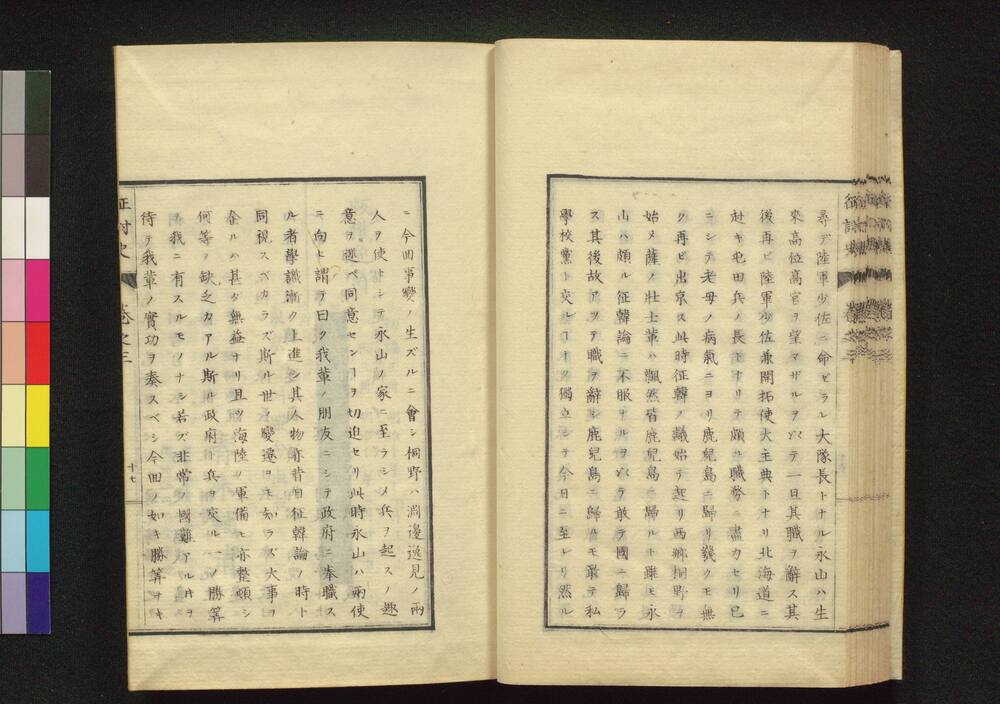 尋デ陸軍少佐ニ命ゼラレ大隊長トナル永山ハ生
來高位高官ヲ望マザルヲ以テ一旦其職ヲ辭ス其
後再ビ陸軍少佐兼開拓使大主典トナリ北海道ニ
赴キ屯田兵ノ長トナリテ頗ル職務ニ盡力セリ已
ニシテ老母ノ病氣ニヨリ鹿兒島ニ歸リ幾クモ無
ク再ビ出京ス此時征韓ノ議始テ起リ西郷桐野ヲ
始メ薩ノ壮士輩ハ飄然皆鹿兒島ニ歸ルト雖モ永
山ハ頗ル征韓論ニ不服ナルヲ以テ敢テ國ニ歸ラ
ス其後故アツテ職ヲ辭シ鹿兒島ニ歸ルモ嚴テ私
學校黨ト交ルヿナク獨立シテ今日ニ至レリ然ル
ニ今回事變ノ生ズルニ會シ桐野ハ淵邊逸見ノ兩
人ヲ使トシテ永山ノ家ニ至ラシメ兵ヲ起スノ趣
意ヲ述ベ同意センヿヲ切迫セリ此時永山ハ兩使
ニ向ヒ謂テ曰ク我輩ノ朋友ニシテ政府ニ奉職ス
ル者學識漸ク上進シ其人物亦昔日征韓論ノ時ト
同視スベカラズ斯ル世ノ變遷ヲモ知ラズ大事ヲ
企ルハ甚ダ無益ナリ且ツ海陸ノ軍備モ亦整頓シ
何等ノ缺乏カアル斯ル政府ト兵ヲ交ル一ノ勝筭
ノ我ニ有スルモノナシ若ズ非常ノ國難アル時ヲ
待テ我輩ノ實功ヲ奏スベシ今回ノ如キ勝筭ナキ
征討史
卷之三
十七